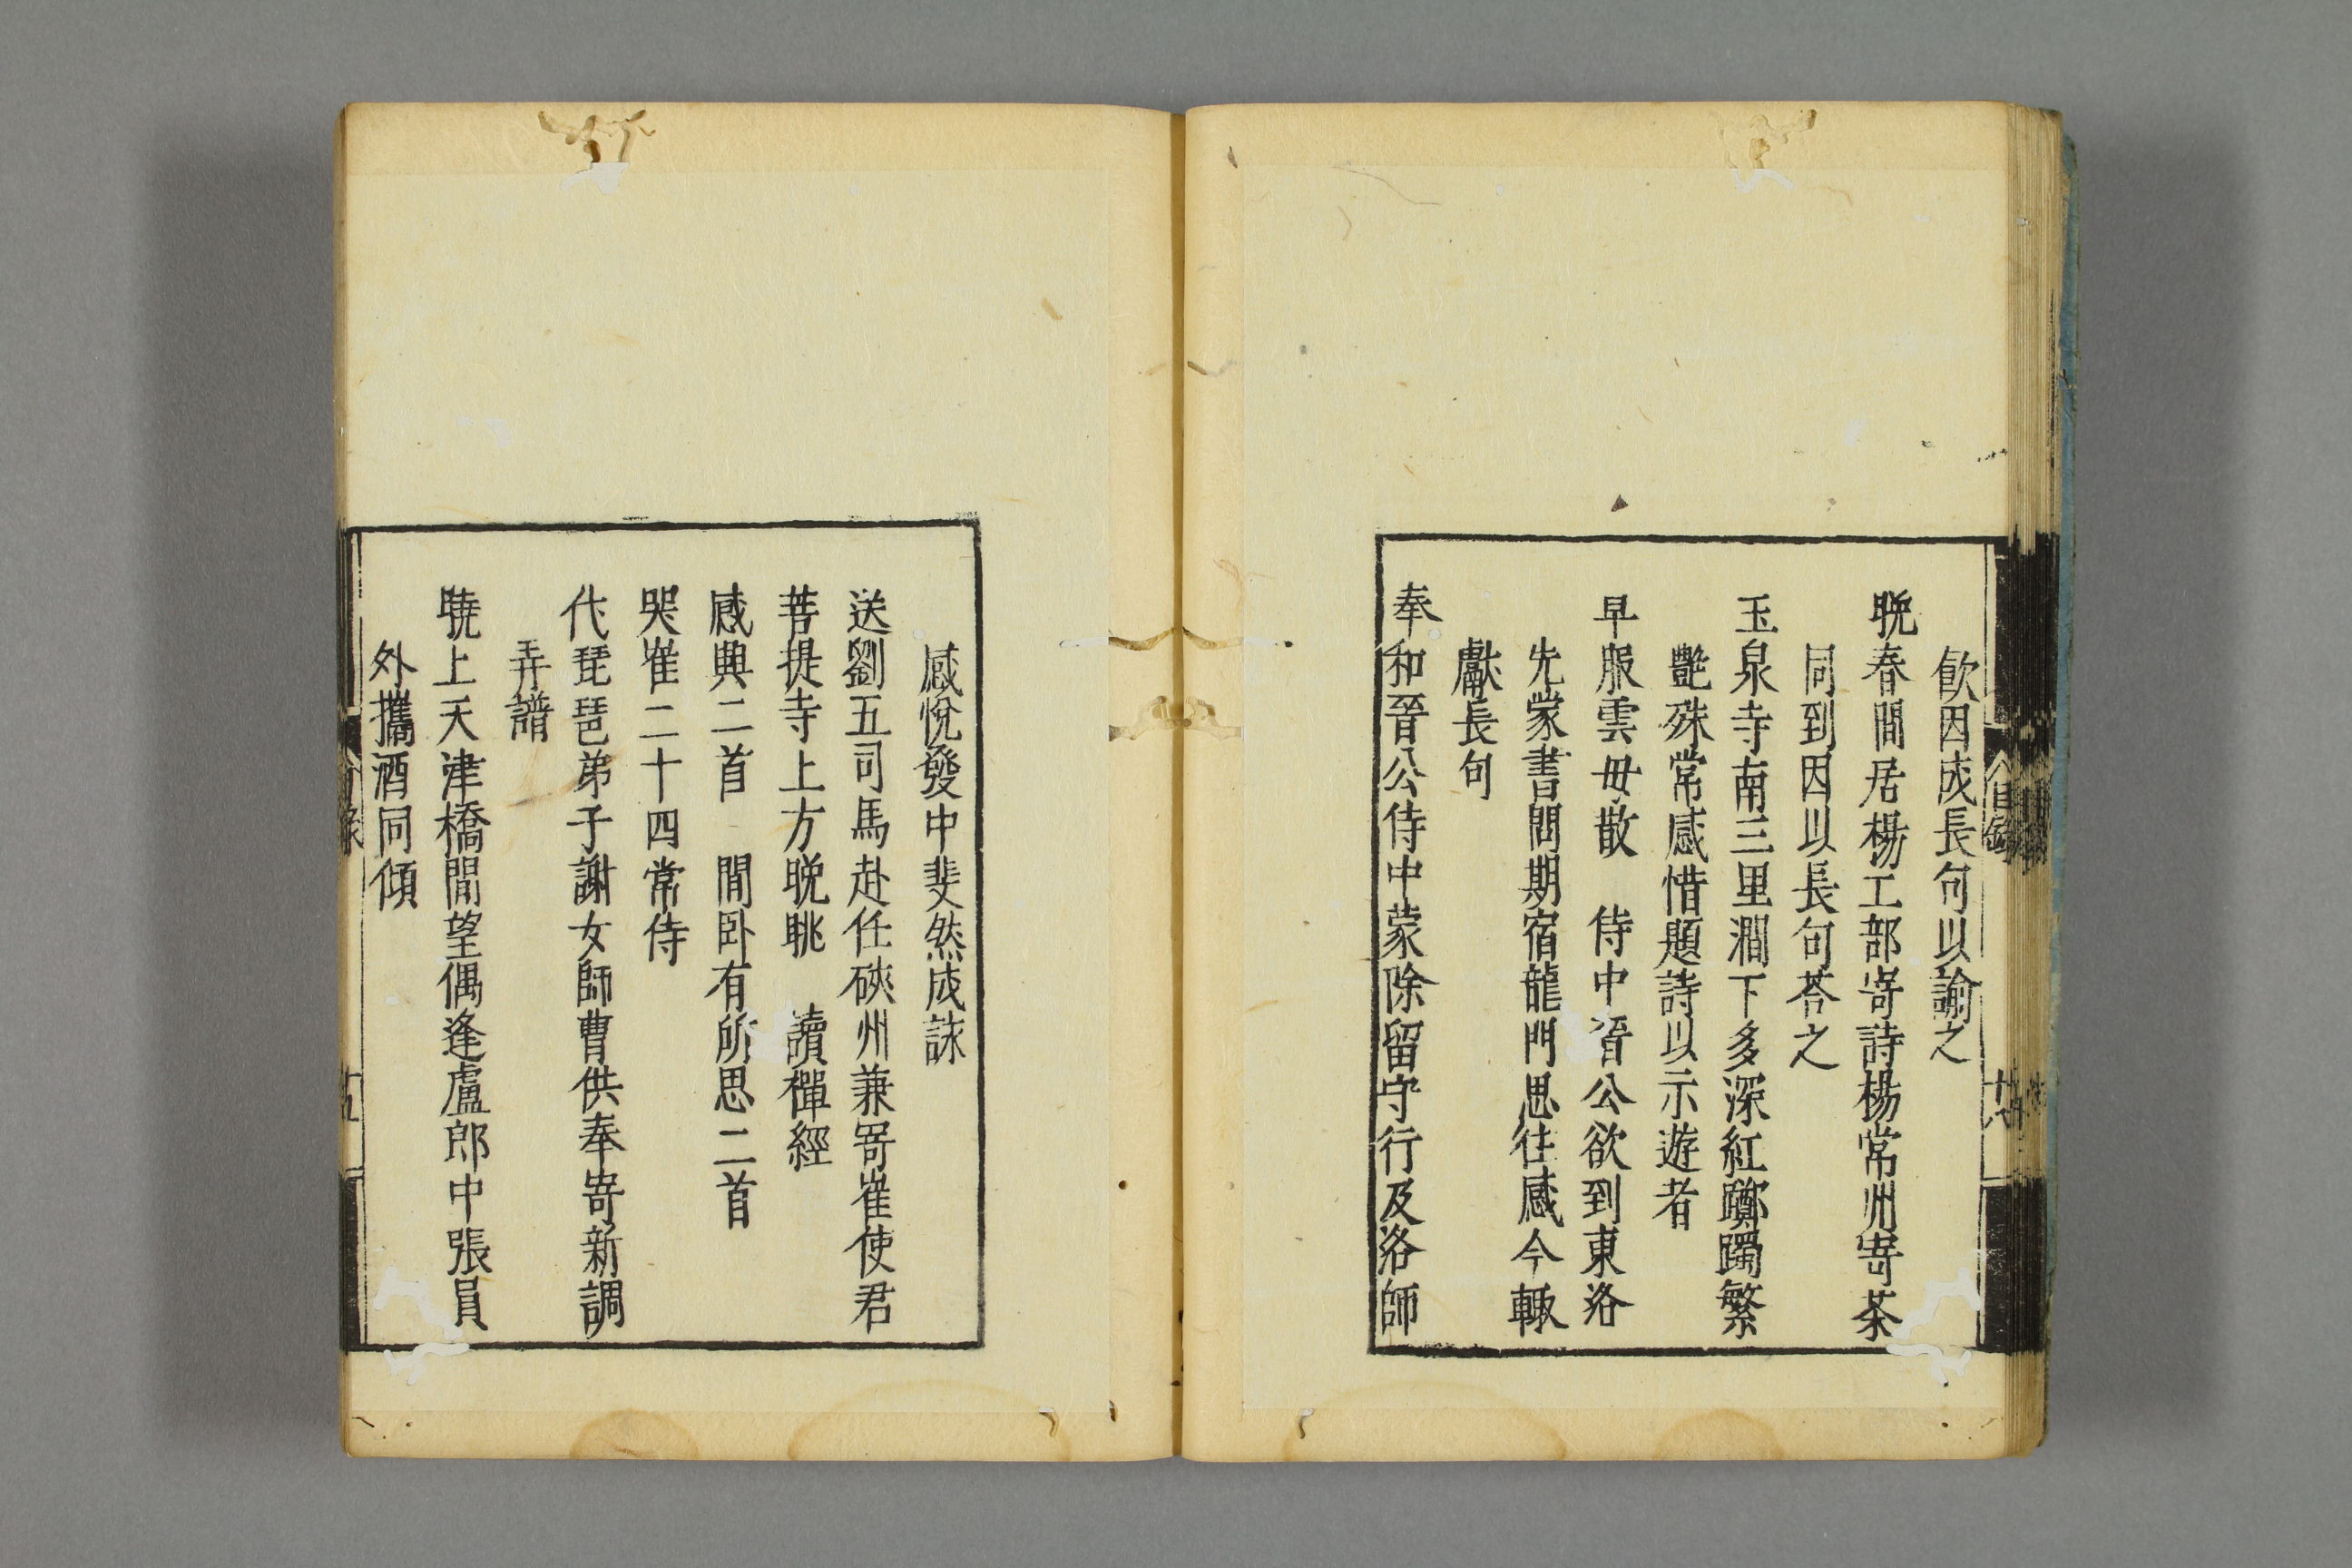 飲因成長句以諭之
晩春閒居楊工部寄詩楊常州寄茶
同到因以長句荅之
玉泉寺南三里澗下多深紅躑躅繁
艶殊常感惜題詩以示遊者
早服雲母散　侍中晉公欲到東洛
先蒙書問期宿龍門思往感今輙
獻長句
奉和晉公侍中蒙除留守行及洛師
目錄
感悅發中斐然成詠
送劉五司馬赴任硤州兼寄崔使君
菩提寺上方晩眺　讀禪經
感興二首　閒臥有所思二首
哭崔二十四常侍
代琵琶弟子謝女師曹供奉寄新調
弄譜
曉上天津橋閒望偶逢盧郎中張員
外攜酒同傾